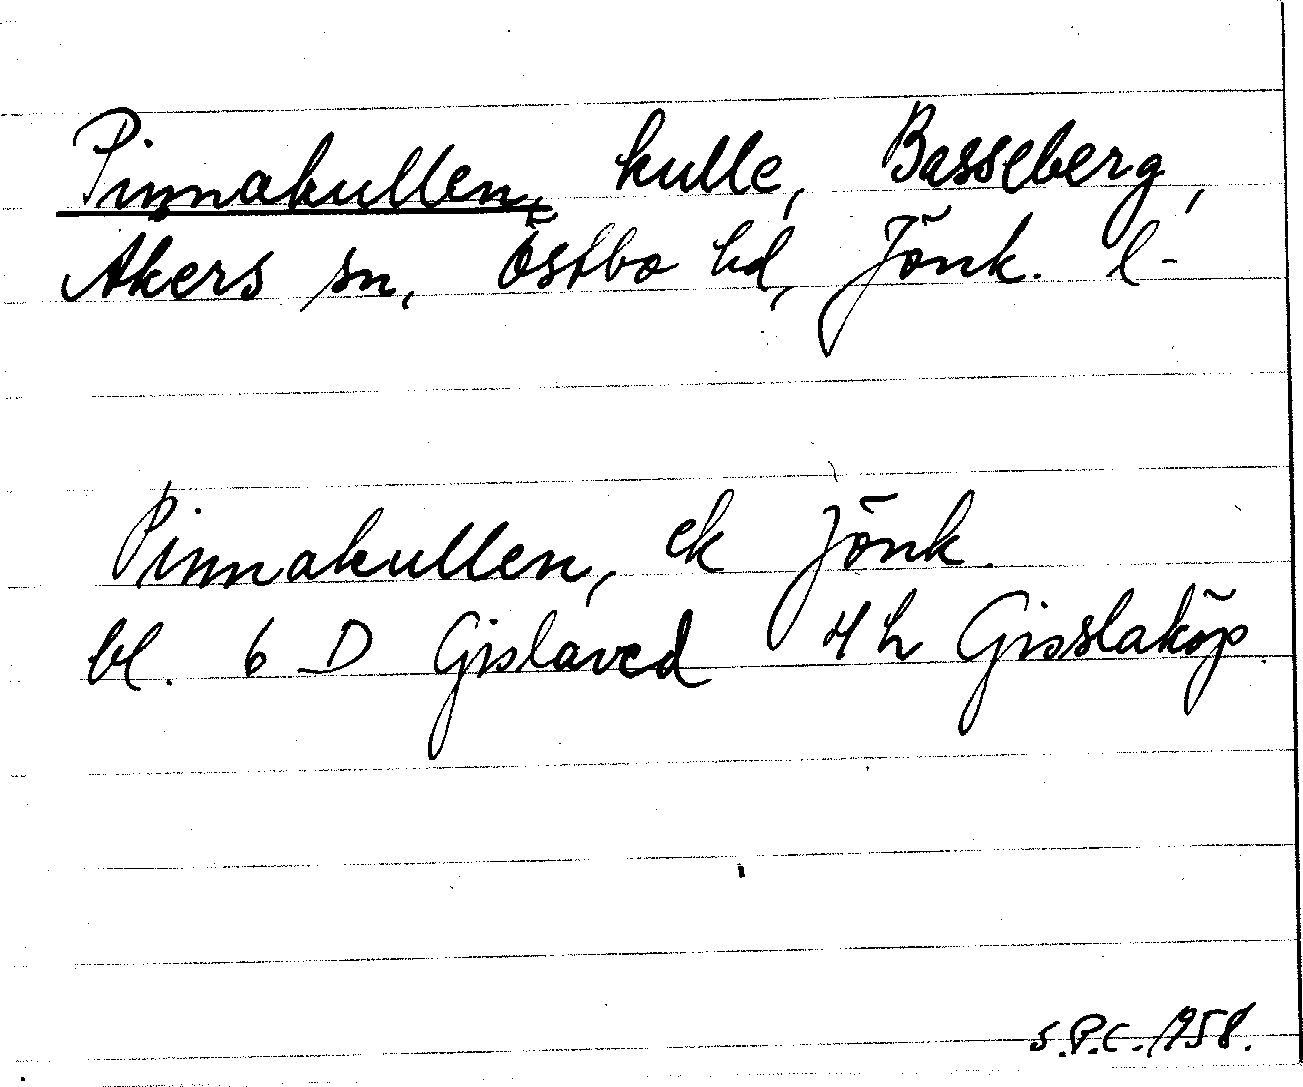 Pinnakullen, kulle, Basseberg,
Åkers sn, Östbo hd, Jönk. l-
Pinnakullen, ek Jönk.
bl. 6 D Gislaved 4 h Gisslaköp.
S.P.C. 1958.